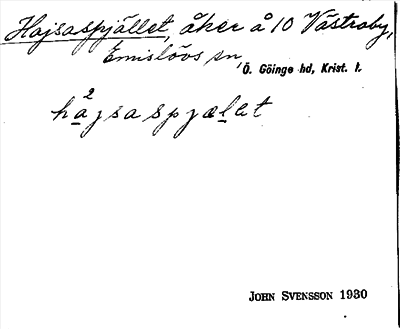 Hajsaspjället, åker å 10 Västraby,
Emislövs sn, Ö. Göinge hd, Krist. l.
2
hajsaspjælet
JOHN SVENSSON 1930